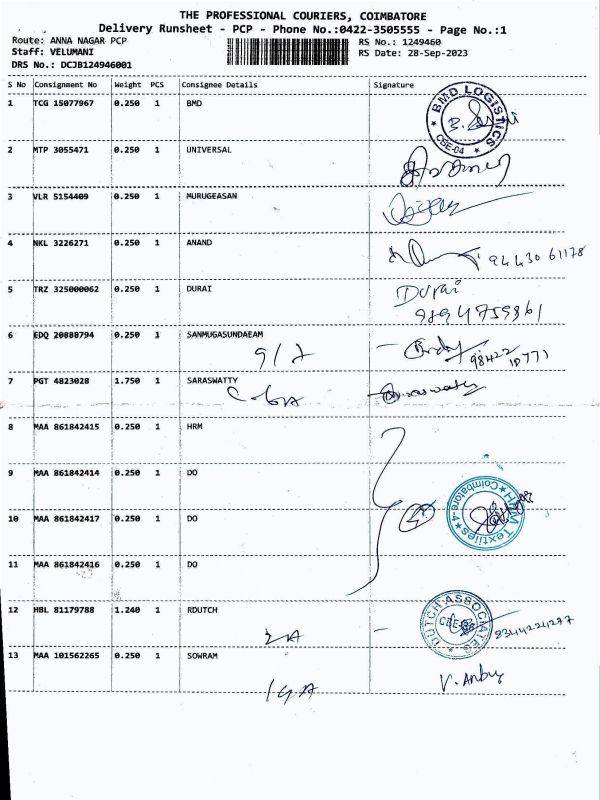 THE PROFESSIONAL COURIERS, COIMBATORE
Delivery Runsheet - PCP - Phone No.:0422-3505555 - Page No.:1
Route: ANNA NAGAR PCP RS No.: 1249460
Staff: VELUMANI RS Date: 28-Sep-2023
DRS No.: DCJB124946001
S No Consignment No Weight PCS Consignee Details Signature
1 TCG 15077967 0.250 1 BMD
BMD LOGISTICS CBE-04
2 MTP 3055471 0.250 1 UNIVERSAL
3 VLR 5154409 0.250 1 MURUGEASAN
4 NKL 3226271 0.250 1 ANAND
94430 61178
5 TRZ 325000062 0.250 1 DURAI Durai
6 EDQ 20888794 0.250 1 SANMUGASUNDAEAM
7 PGT 4823028 1.750 1 SARASWATTY
8 MAA 861842415 0.250 1 HRM
9 MAA 861842414 0.250 1 DO
HRM Textiles Coimbatore-4
10 MAA 861842417 0.250 1 DO
11 MAA 861842416 0.250 1 DO
12 HBL 81179788 1.240 1 RDUTCH
DUTCH ASSOCIATES
13 MAA 101562265 0.250 1 SOWRAM